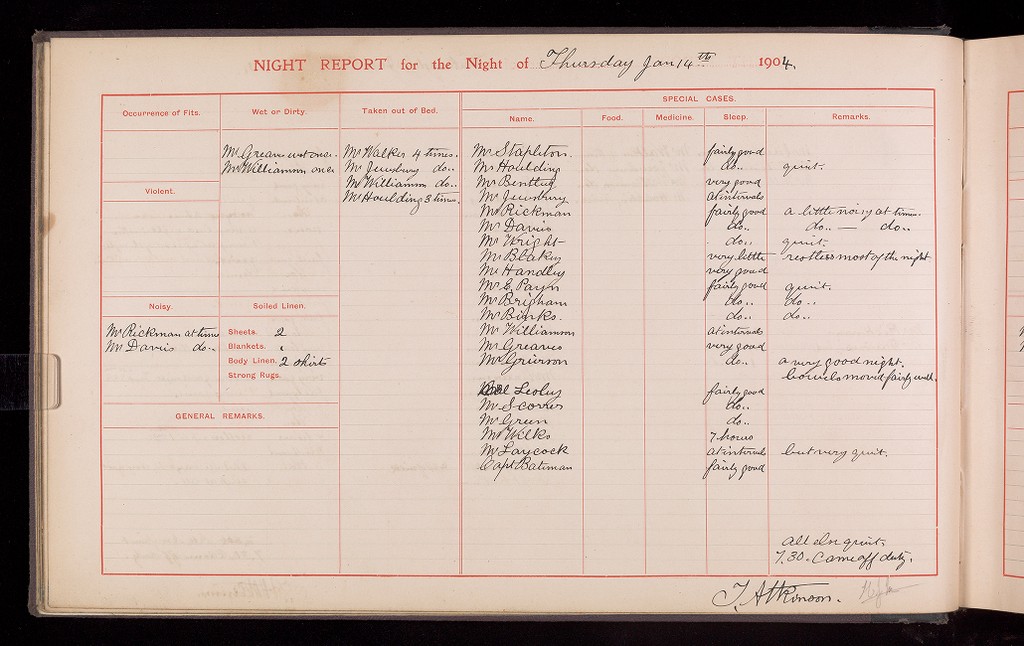 NIGHT REPORT for the Night of Thursday Jan 14th 1904.
Occurrence of Fits.
Wet or Dirty.
Mr Greaves wet once.
Mr Williamson once
Taken out of Bed.
Mr Walker 4 times.
Mr Jewsbury do..
Mr Williamson do..
Mr Houlding 3 times.
Violent.
Noisy.
Mr Rickman at times
Mr Davis do..
Soiled Linen.
Sheets. 2
Blankets.
Body Linen. 2 shirts
Strong Rugs.
GENERAL REMARKS.
SPECIAL CASES.
Name. Food. Medicine. Sleep. Remarks.
Mr Stapleton. fairly good
Mr Houlding do.. quiet.
Mr Bentley very good
Mr Jewsbury at intervals
Mr Rickman fairly good a little noisy at times
Mr Davis do.. do.. — do..
Mr Wright do.. quiet.
Mr Blakey very little restless most of the night
Mr Handley very good
Mr E. Payn fairly good quiet.
Mr Brigham do.. do..
Mr Binks. do.. do..
Mr Williamson at intervals
Mr Greaves very good
Mr Grierson do.. a very good night.
bowels moved fairly well.
Lesley fairly good
Mr Scorer do..
Mr Green do..
Mr Wilks 7 hours
Mr Laycock at intervals but very quiet.
Capt Bateman fairly good
All else quiet.
7.30. Came off duty.
T. Atkinson.